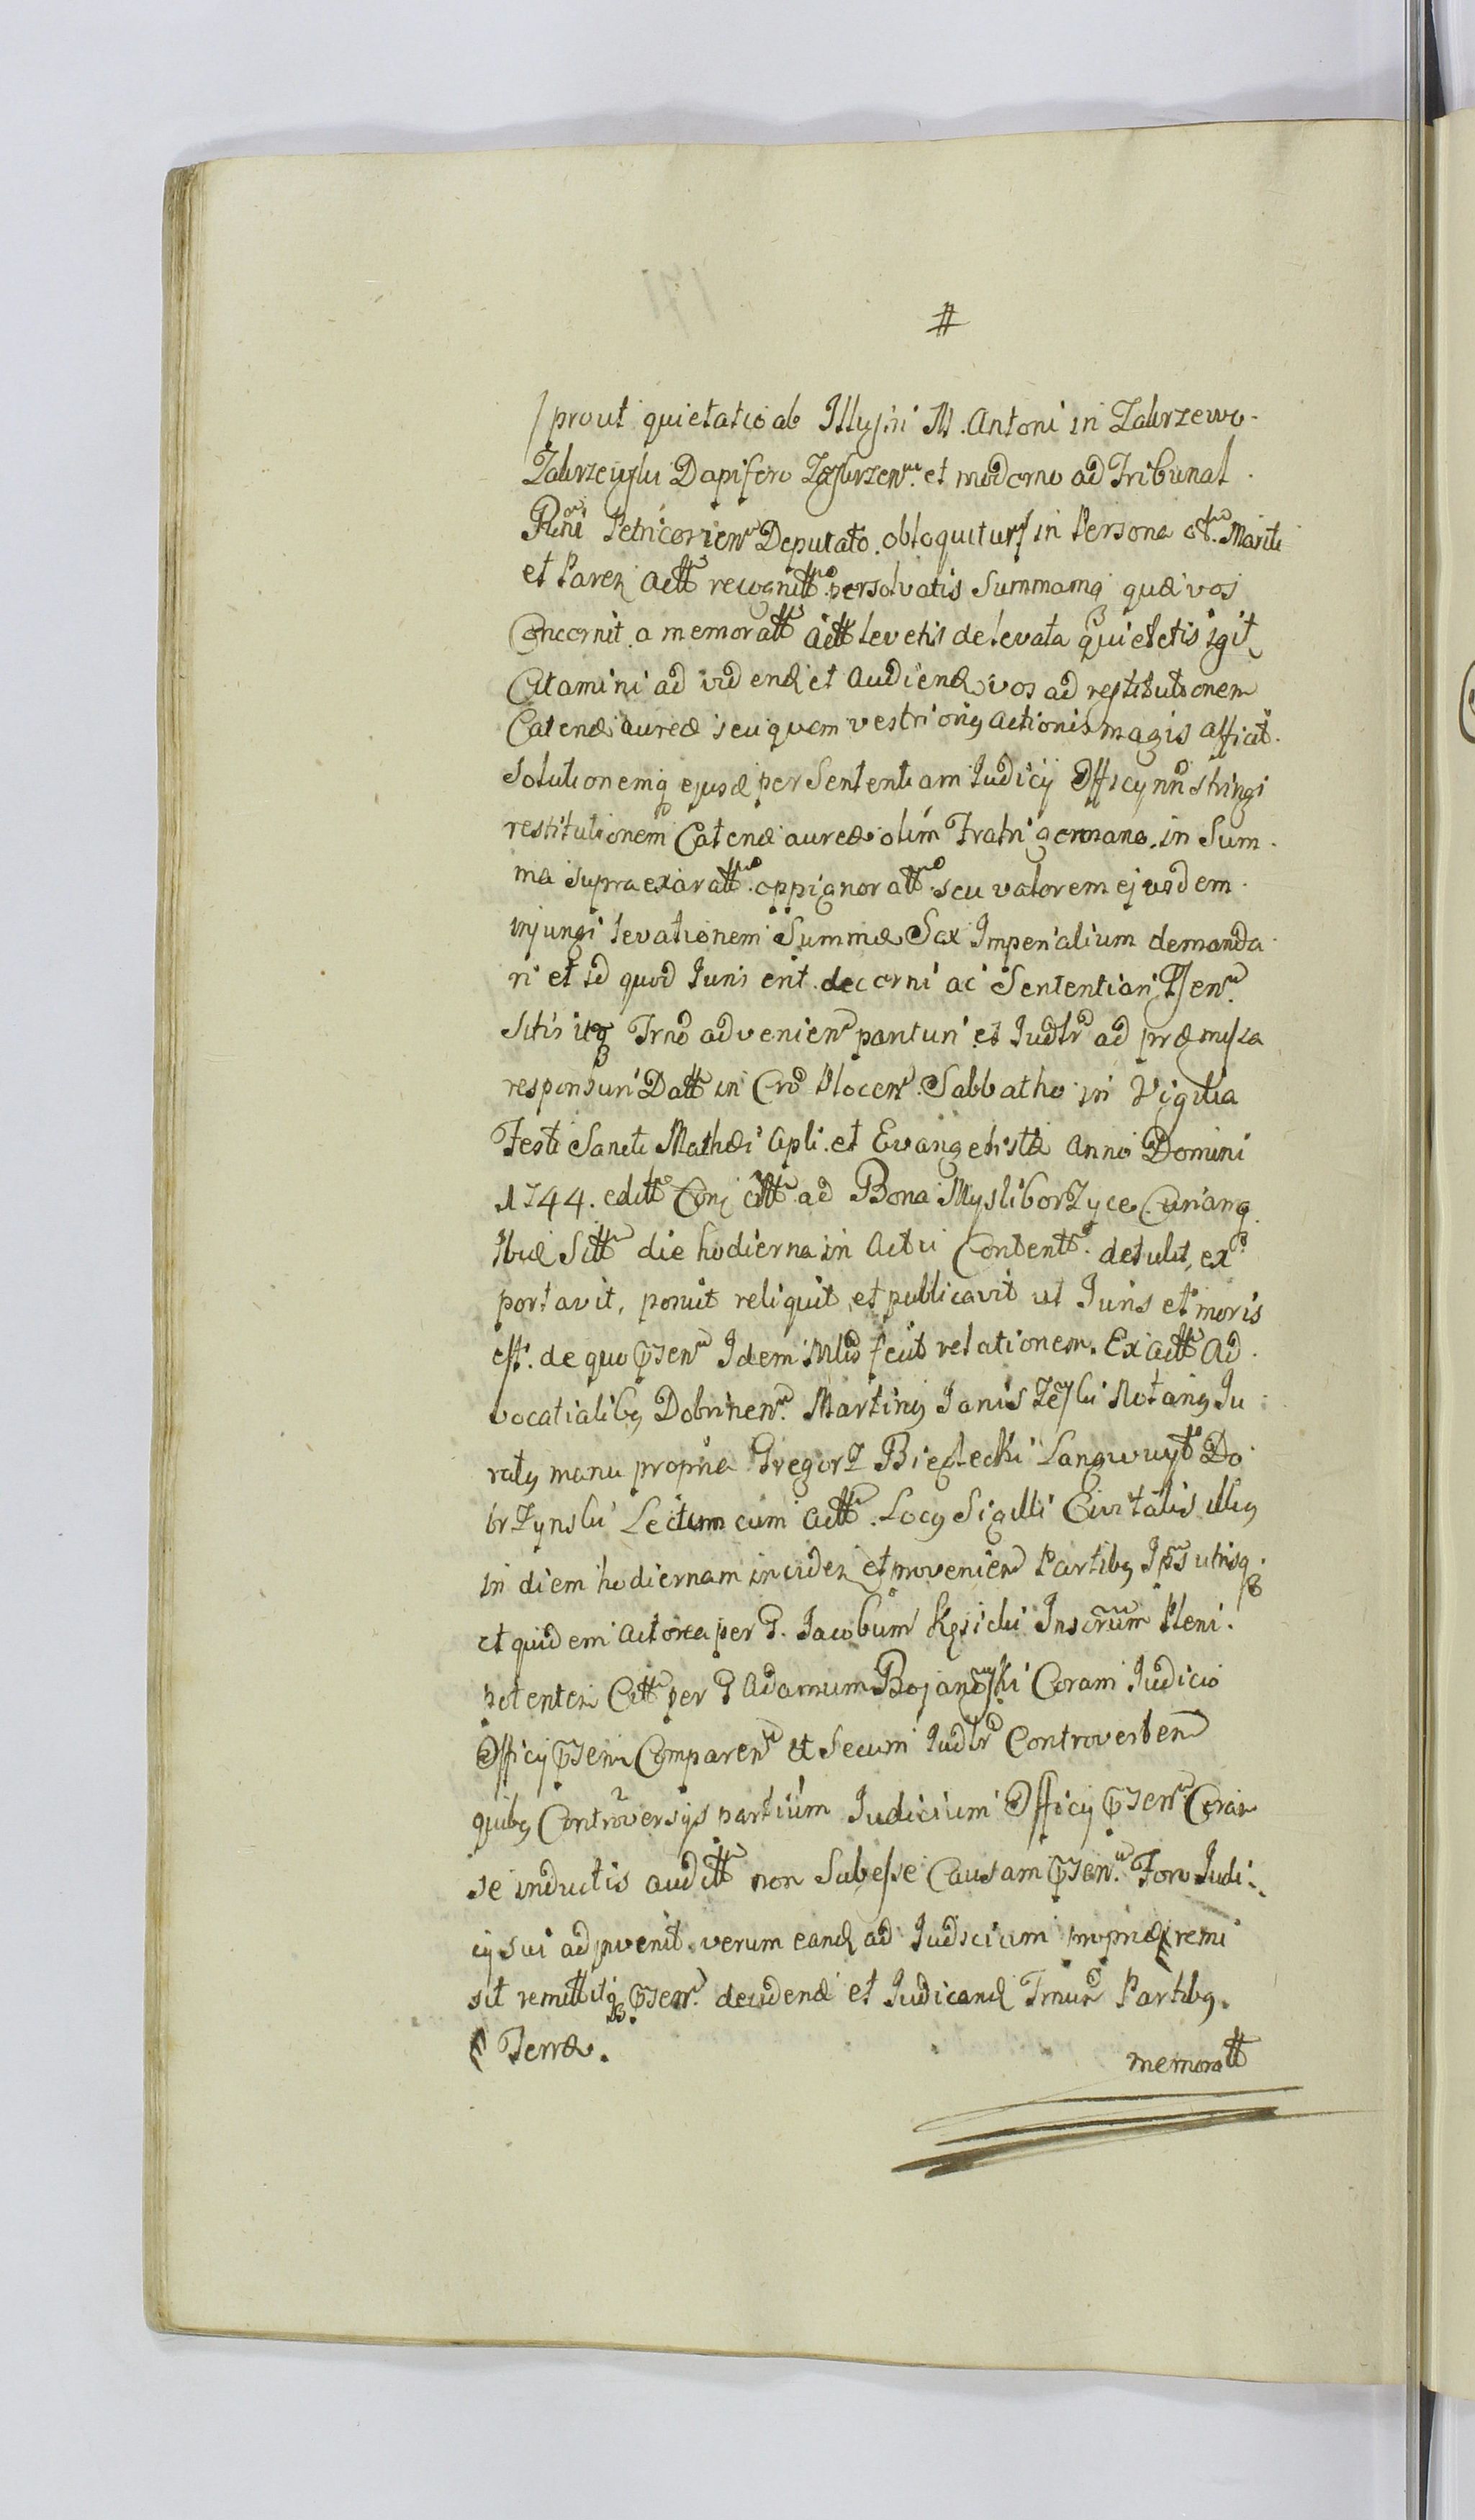 #
/prout quietatio ab Illustri M. Antoni in Zakrzewo
Zakrzewski Dapifero et moderno ad Tribunal
Petricovien Deputato obloquitur/ in Persona Mariti
et Paren Actt recognitt persolvatis Summamq quæ vos
Concernit a memoratt Actt levetis de levata quietetis igit
Citamini ad videnđ et Audienđ vos ad restitutionem
Catenæ aureæ seu quem vestri oris actionis magis afficit
Solutionemq ejusđ per Sententiam Judicÿ Officÿ nři stringi
restitutionem Catenæ aureæ olim Fratri germano in Sum
ma supra exaratt oppignoratt seu valorem ejusdem
injungi levationem Summæ Sex Imperialium demanda
ri et id quod Juris erit decerni ac Sententiari Psen
Sitis itq Trno advenien parituri et Judlr ad præmissa
responsuri Datt in Cro Plocen Sabbatho in Vigilia
Festi Sancti Mathæi Apli et Evangelistæ Anno Domini
1744. editt Conj citt ad Bona Myśliborzyce Curiamq
Ibiđ Sitt die hodierna in Actu Contentt detulit, ex
portavit, posuit reliquit et publicavit ut Juris et moris
est. de quo Psen Idem Mlis fecit relationem. Ex Actt Ad
vocatialibg Dobrinen Marting Janiszewski Notarig Ju
ratg manu propria Gregorz Langwuyt Do
brzynski Lectum cum Actt. Locg Sigilli Civitatis illig
in diem hodiernam inciden et provenien Partibg Ipsis utrisq
et quidem Actorea per G. Jacobum Kęsicki Inscrum Pleni
potenten Citt per G Adamum Bojanowski Coram Judicio
Officÿ Psen Comparen et Secum Judlr Controverten
quibg Controversÿs partium Judicium Officÿ Psen Coram
se inductis auditt non Subesse Causam Psen Foro Judi
cÿ sui adinvenit verum eanđ ad Judicium propriæ remi
sit remittitq Psen decidenđ et Judicanđ Trnum Partibg
Terræ.
memoratt